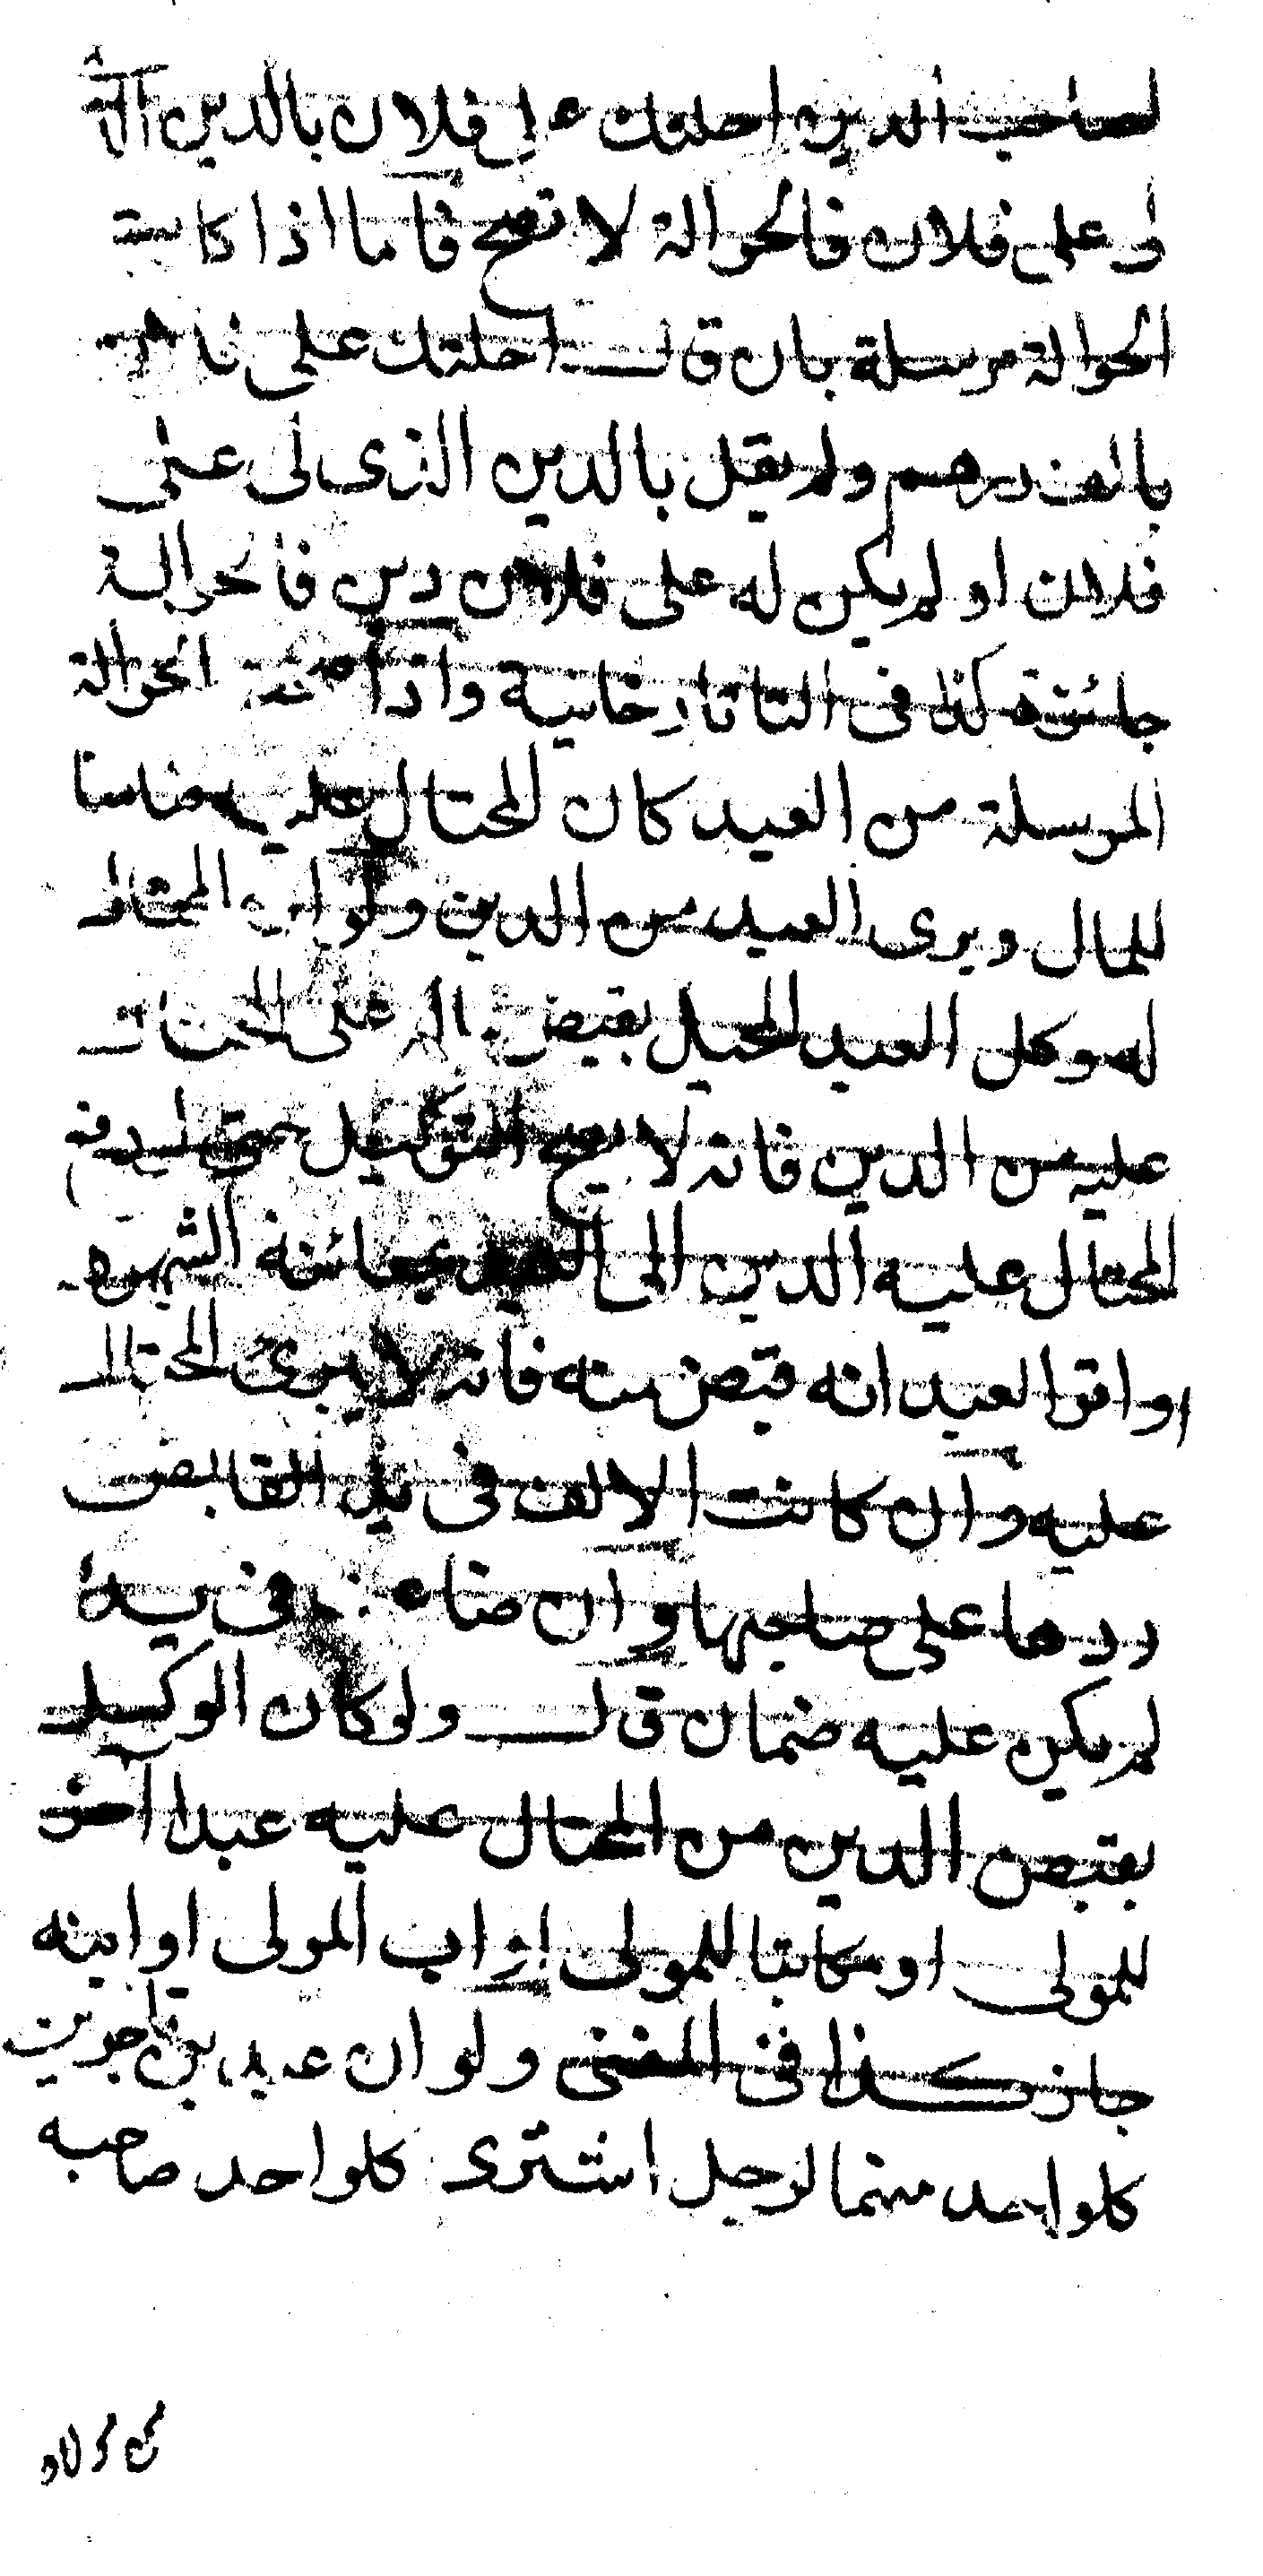 لصاحب الدين احلتك على فلان بالدين الذى
لى على فلان فالحوالة لا تصح فاما اذا كانت
الحوالة مرسلة بان قال احلتك على فلان
بالف درهم ولم يقل بالدين الذى لى على
فلان او لم يكن له على فلان دين فالحوالة
جائزة كذا فى التاتارخانية واذا صحت الحوالة
المرسلة من العبد كان المحتال عليه ضامنا
للمال وبرى العبد من الدين ولو ان المحتال
له وكل العبد المحيل بقبض ماله على المحتال
عليه من الدين فانه لا يصح التوكيل حتى لو دفع
المحتال عليه الدين الى العبد بمعاينة الشهود
او اقر العبد انه قبض منه فانه لا يبرئ المحتال
عليه وان كانت الالف فى يد القابض
ردها على صاحبها وان ضاعت فى يده
لم يكن عليه ضمان قال ولو كان الوكيل
بقبض الدين من المحتال عليه عبدا آخر
للمولى او مكاتبا للمولى او اب المولى او ابنه
جاز كذا فى المغنى ولو ان عبدين تاجرين
كلواحد منهما لرجل اشترى كلواحد صاحبه